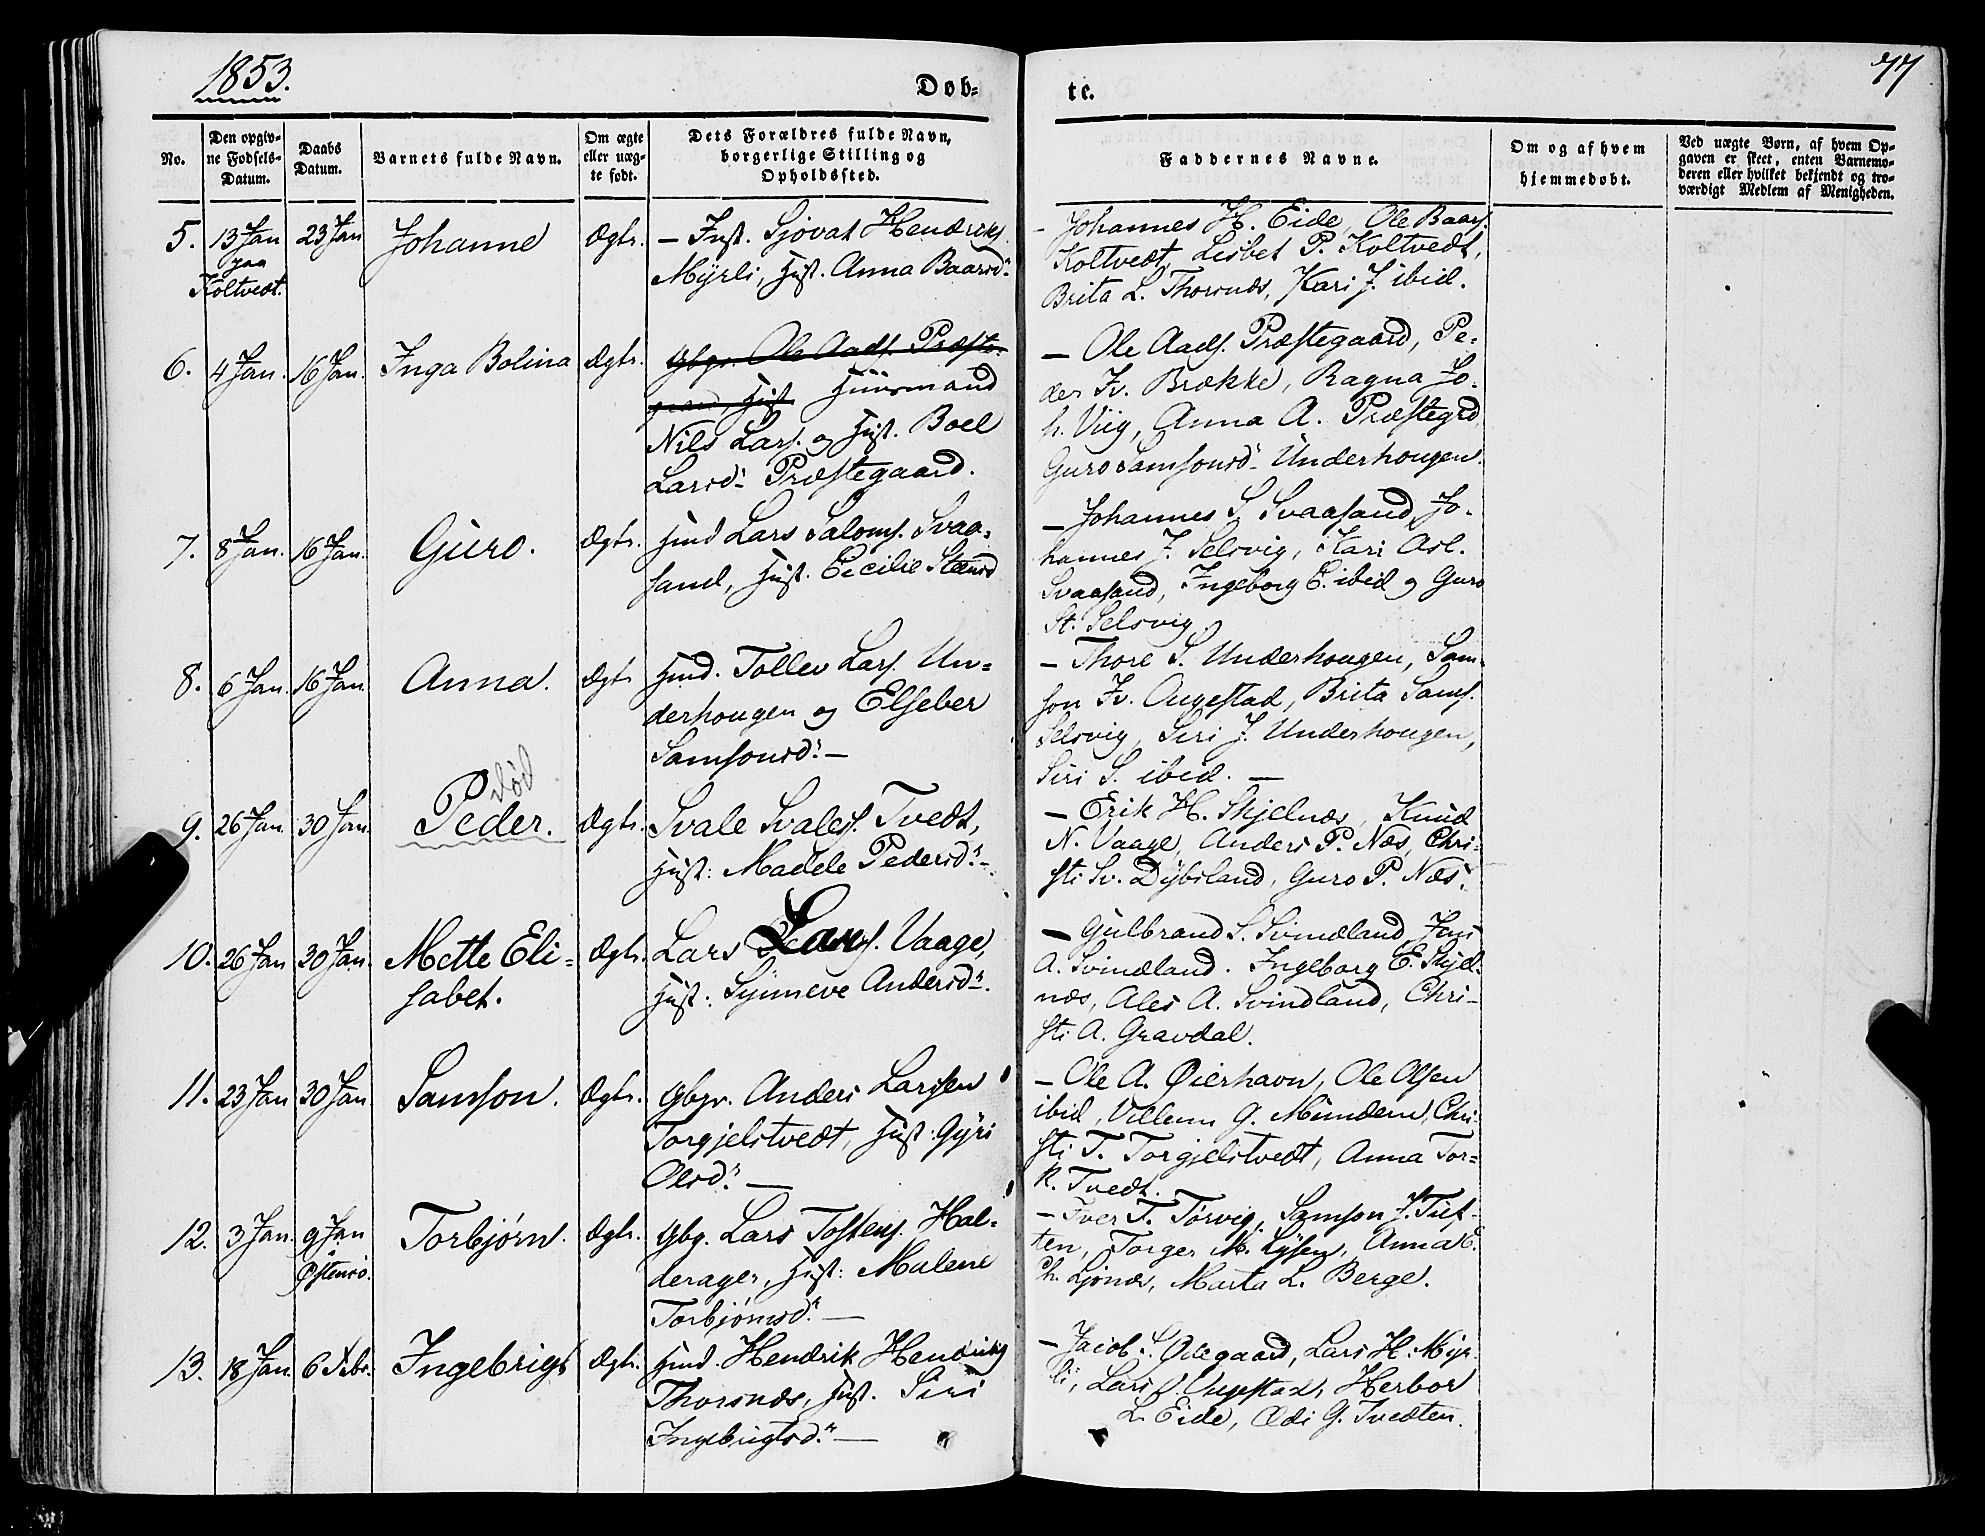 1853.
Døb-
te.
77
No.
Den opgiv-
ne Fødsels-
Datum.
Daabs
Datum.
Barnets fulde Navn.
Om ægte
eller uæg-
te født.
Dets Forældres fulde Navn,
borgerlige Stilling og
Opholdssted.
Faddernes Navne.
Om og af hvem
hjemmedøbt.
Ved uægte Børn, af hvem Op-
gaven er skeet, enten Barnemo-
deren eller hvilket bekjendt og tro-
værdigt Medlem af Menigheden.
5. 13 Jan 23 Jan Johanne Ægte. – Inst. Sjovat Hendriks.
paa
Koltvedt.
Myrli, Hust. Anna Baarsd.
– Johannes H. Eide, Ole Baars.
Koltvedt, Lisbet P. Koltvedt,
Brita L. Thorsnæs, Kari J. ibid.
6. 4 Jan. 16 Jan. Inga Bolina Ægte. Gbgr. Ole Aads. Præste-
gaard, Hust. Huusmand
Nils Lars. og Hust. Boel
Larsd. Præstegaard.
– Ole Aads. Præstegaard, Pe-
der Iv. Brække, Ragna Jo-
h. Viig, Anna A. Præstegrd,
Guro Samsonsd. Underhougen.
7. 8 Jan. 16 Jan. Guro. Ægte. Hmd Lars Saloms. Svaa-
sand, Hust. Cecilie Steensd
– Johannes S. Svaasand, Jo-
hannes J. Selsvig, Kari Asl.
Svaasand, Ingeborg E. ibid og Guro
St. Selsvig.
8. 6 Jan. 16 Jan. Anna. Ægte Hmd. Tollev Lars. Un-
derhougen og Elseber
Samsonsd. –
– Thore S. Underhougen, Sam-
son Iv. Augestad, Brita Sams.
Selsvig, Siri J. Underhougen,
Siri S. ibid. –
død
9. 26 Jan. 30 Jan. Peder. Ægte. Svale Svales. Tvedt,
Hust: Madele Pedersd. –
– Erik H. Skjelnæs, Knud
N. Vaage, Anders P. Næs, Chri-
sti Sv. Dybsland, Guro P. Næs.
10. 26 Jan 30 Jan. Mette Eli- Ægte. Lars Lars. Vaage,
sabet.
Hust: Synneve Andersd.
– Gulbrand S. Svindland, Jens
A. Svindland. Ingeborg E. Skjel-
næs, Ales A. Svindland, Chri-
sti A. Gravdal.
11. 23 Jan 30 Jan. Samson. Ægte. Gbgr. Anders Larssen
Torgjelstvedt, Hust: Gyri
Olsd. –
– Ole A. Øierhavn, Ole Olsen
ibid, Villem G. Mundem, Chri-
sti T. Torgjelstvedt, Anna Tor-
k. Tvedt.
12. 3 Jan. 9 Jan Torbjørn. Ægte. Gbg. Lars Tostens. Hal-
Østensø.
derager, Hust: Malene
Torbjørnsd. –
– Iver T. Tørvig, Samson J. Tuf-
ten, Torger M. Lysen, Anna C.
Ch. Ljonæs, Marta L. Berge.
13. 18 Jan. 6 Febr. Ingebrigt Ægte. Hmd. Hendrik Hendriks
Thorsnæs, Hust. Siri
Ingebrigtsd. –
– Jacob S. Ødegaard, Lars H. Myr-
li, Lars Augestad, Herbor
L. Eide, Ædi G. Tvedten.